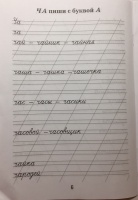 ЧА пиши с буквой А
Ча
ча
чай – чайник – чайная
чаша – чашка – чашечка
час – часы – часики
часовой, часовщик
чайка
чародей
6